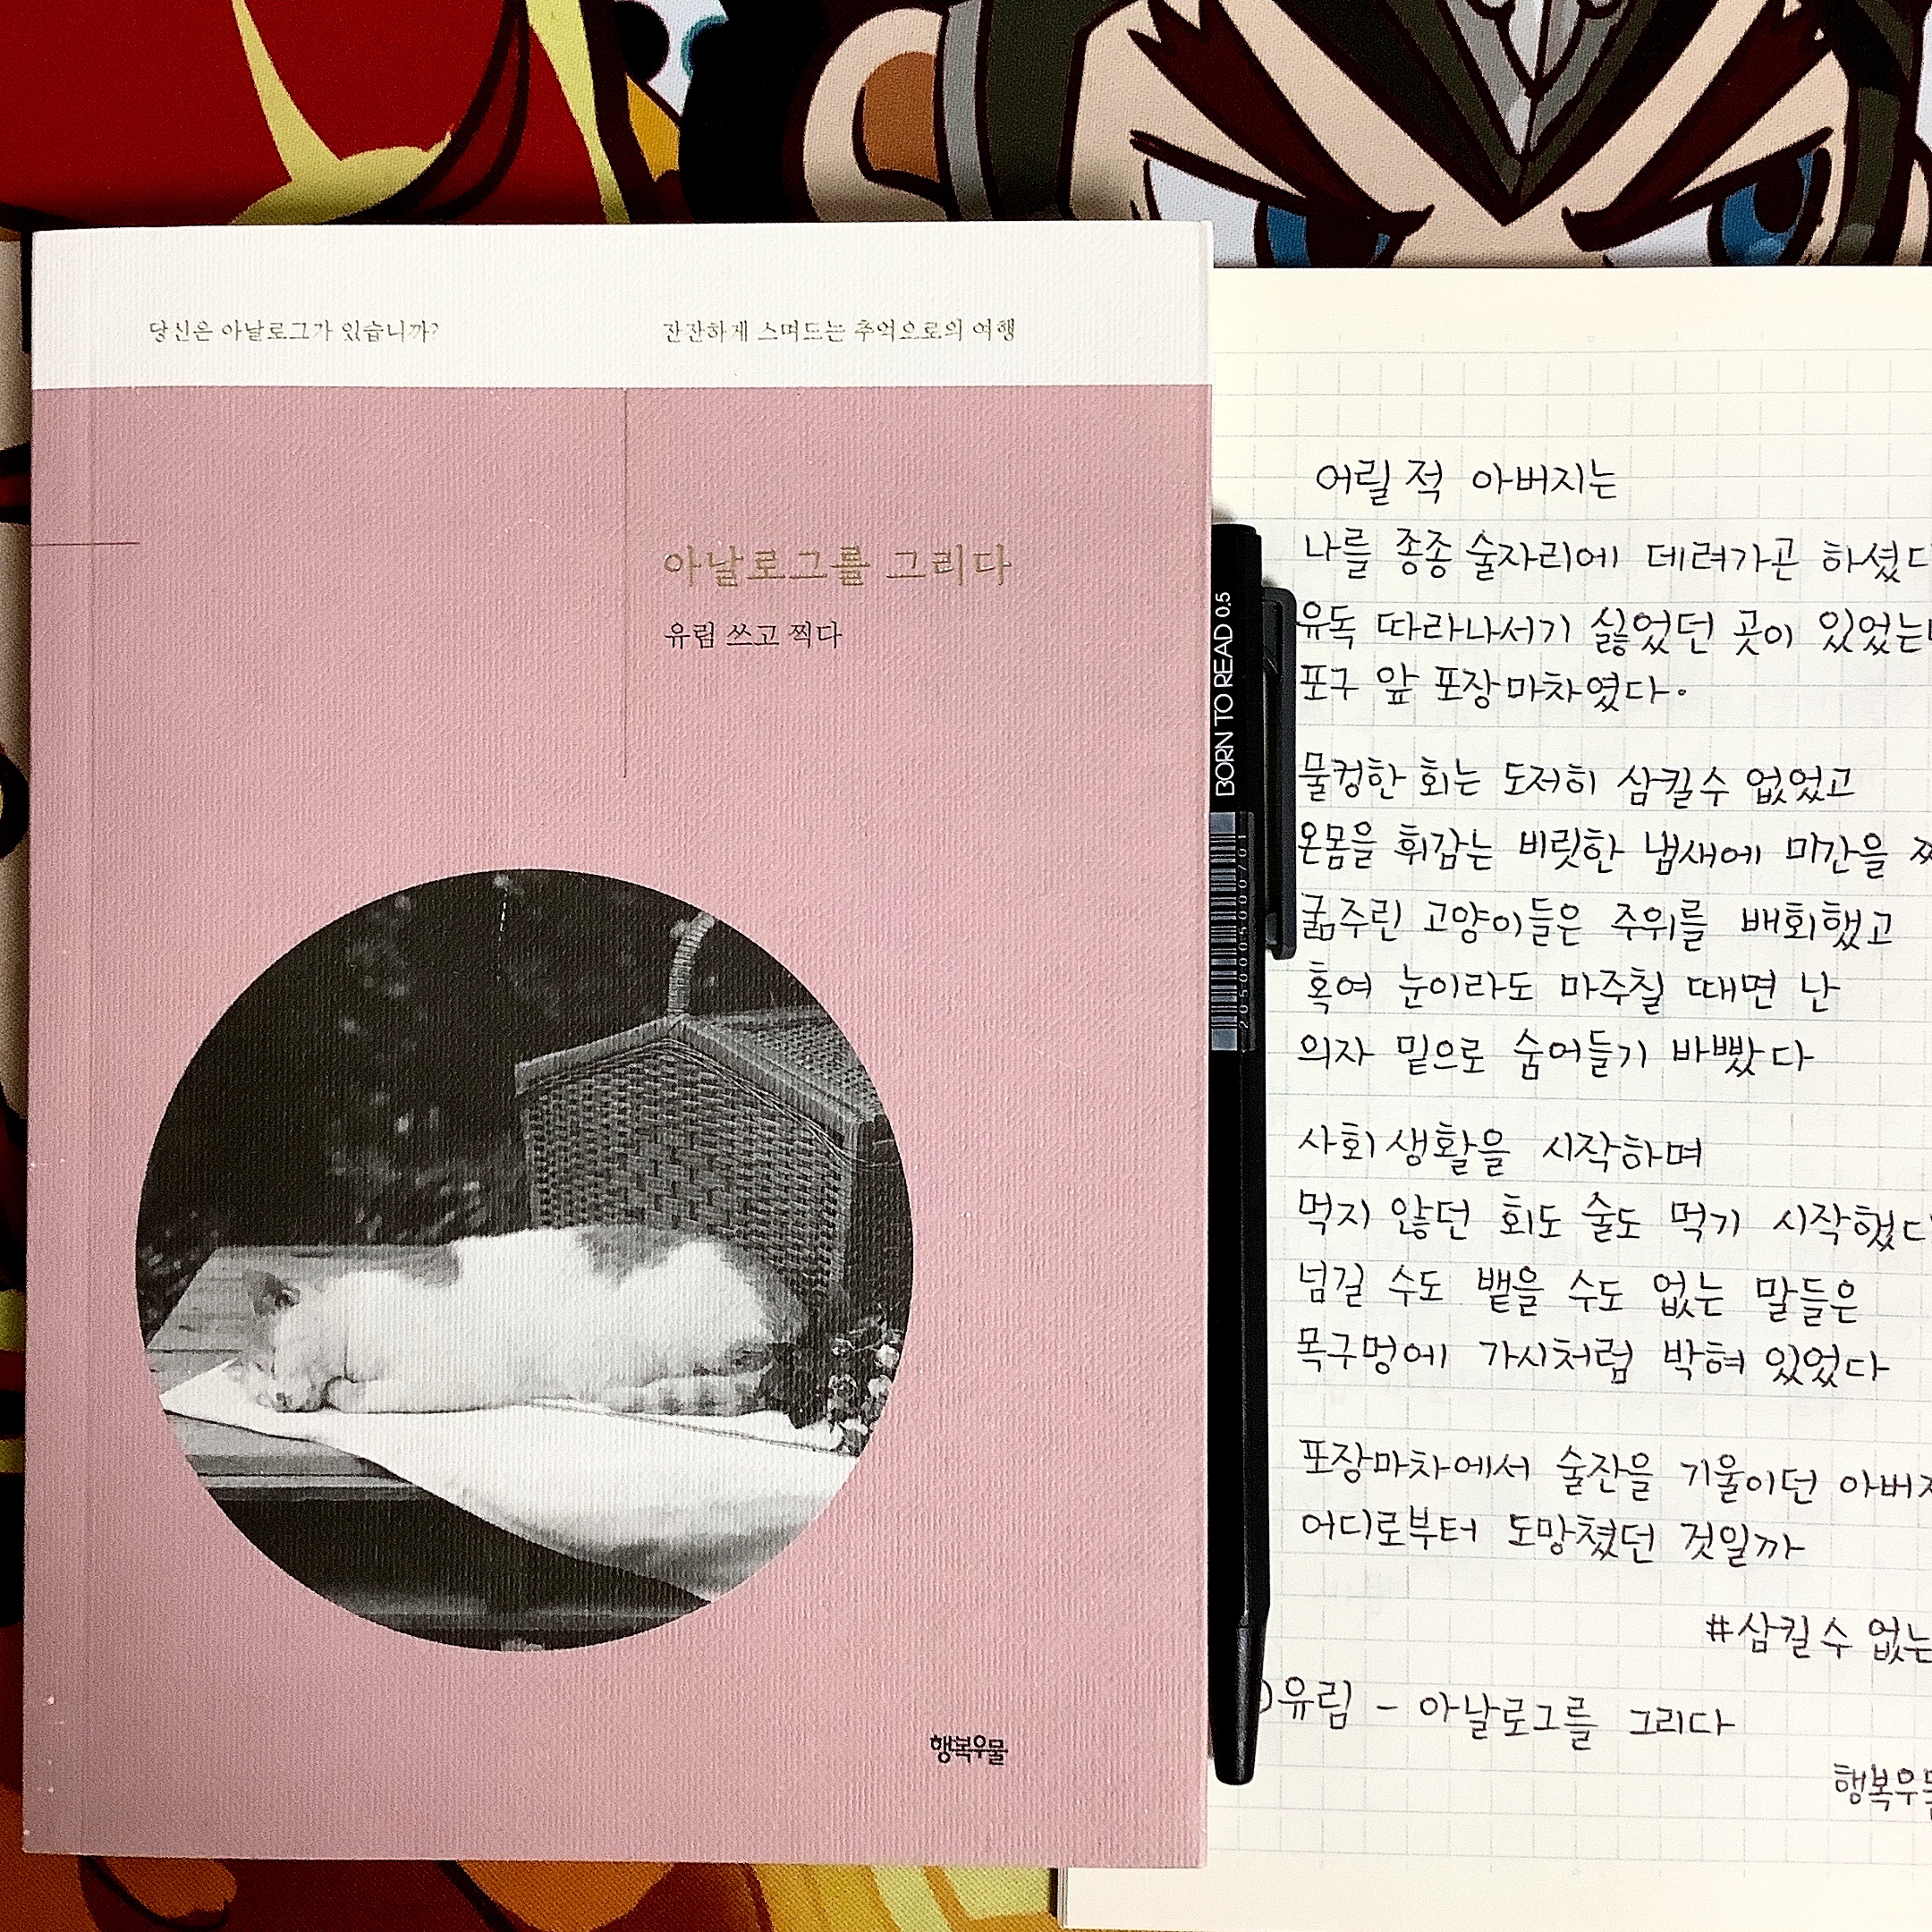 당신은 아날로그가 있습니까?
잔잔하게 스며드는 추억으로의 여행
아날로그를 그리다
유림 쓰고 찍다
행복우물
BORN TO READ 0.5
2050005000701
어릴 적 아버지는
나를 종종 술자리에 데려가곤 하셨
유독 따라나서기 싫었던 곳이 있었는
포구 앞 포장마차였다.
물컹한 회는 도저히 삼킬수 없었고
온몸을 휘감는 비릿한 냄새에 미간을
굶주린 고양이들은 주위를 배회했고
혹여 눈이라도 마주칠 때면 난
의자 밑으로 숨어들기 바빴다
사회생활을 시작하며
먹지 않던 회도 술도 먹기 시작했
넘길 수도 뱉을 수도 없는 말들은
목구멍에 가시처럼 박혀 있었다
포장마차에서 술잔을 기울이던 아버
어디로부터 도망쳤던 것일까
#삼킬수 없는
유림 - 아날로그를 그리다
행복우